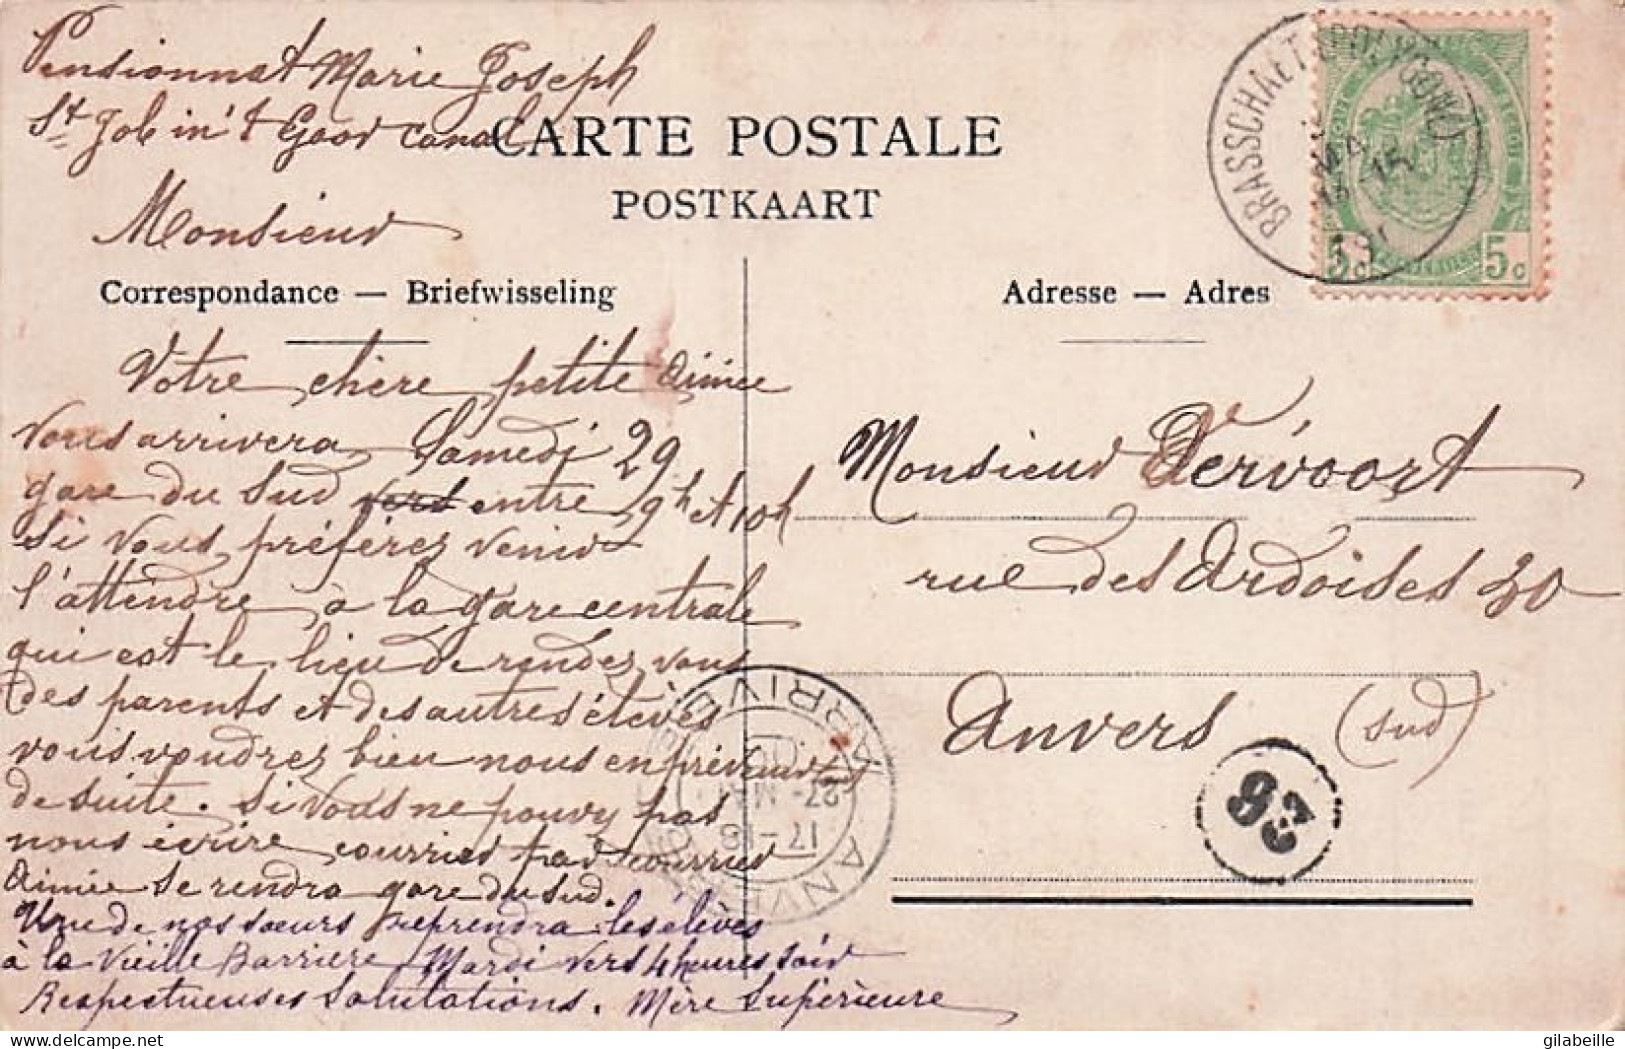 Pensionnat Marie Joseph
St Job in't Goor Canal
CARTE POSTALE
POSTKAART
Monsieur
Correspondance — Briefwisseling
Votre chère petite Aimée
vous arrivera Samedi 29
gare du Sud vers entre 9h et 10h
Si vous préférez venir
l'attendre à la gare centrale
qui est le lieu de rendez vous
des parents et des autres élèves
vous voudrez bien nous en prévenir
de suite. Si vous ne pouvez pas
nous écrire courrier par courrier
Aimée se rendra gare du Sud.
Une de nos sœurs reprendra les élèves
à la Vieille Barrière Mardi vers 4 heures soir
Respectueuses Salutations. Mère Supérieure
Adresse — Adres
Monsieur Vervoort
rue des Ardoises 30
Anvers (Sud)
BRASSCHAET (POLYGONE)
5c 5c
ANVERS
ARRIVÉE
27 MAI
17-18
36
gilabeille